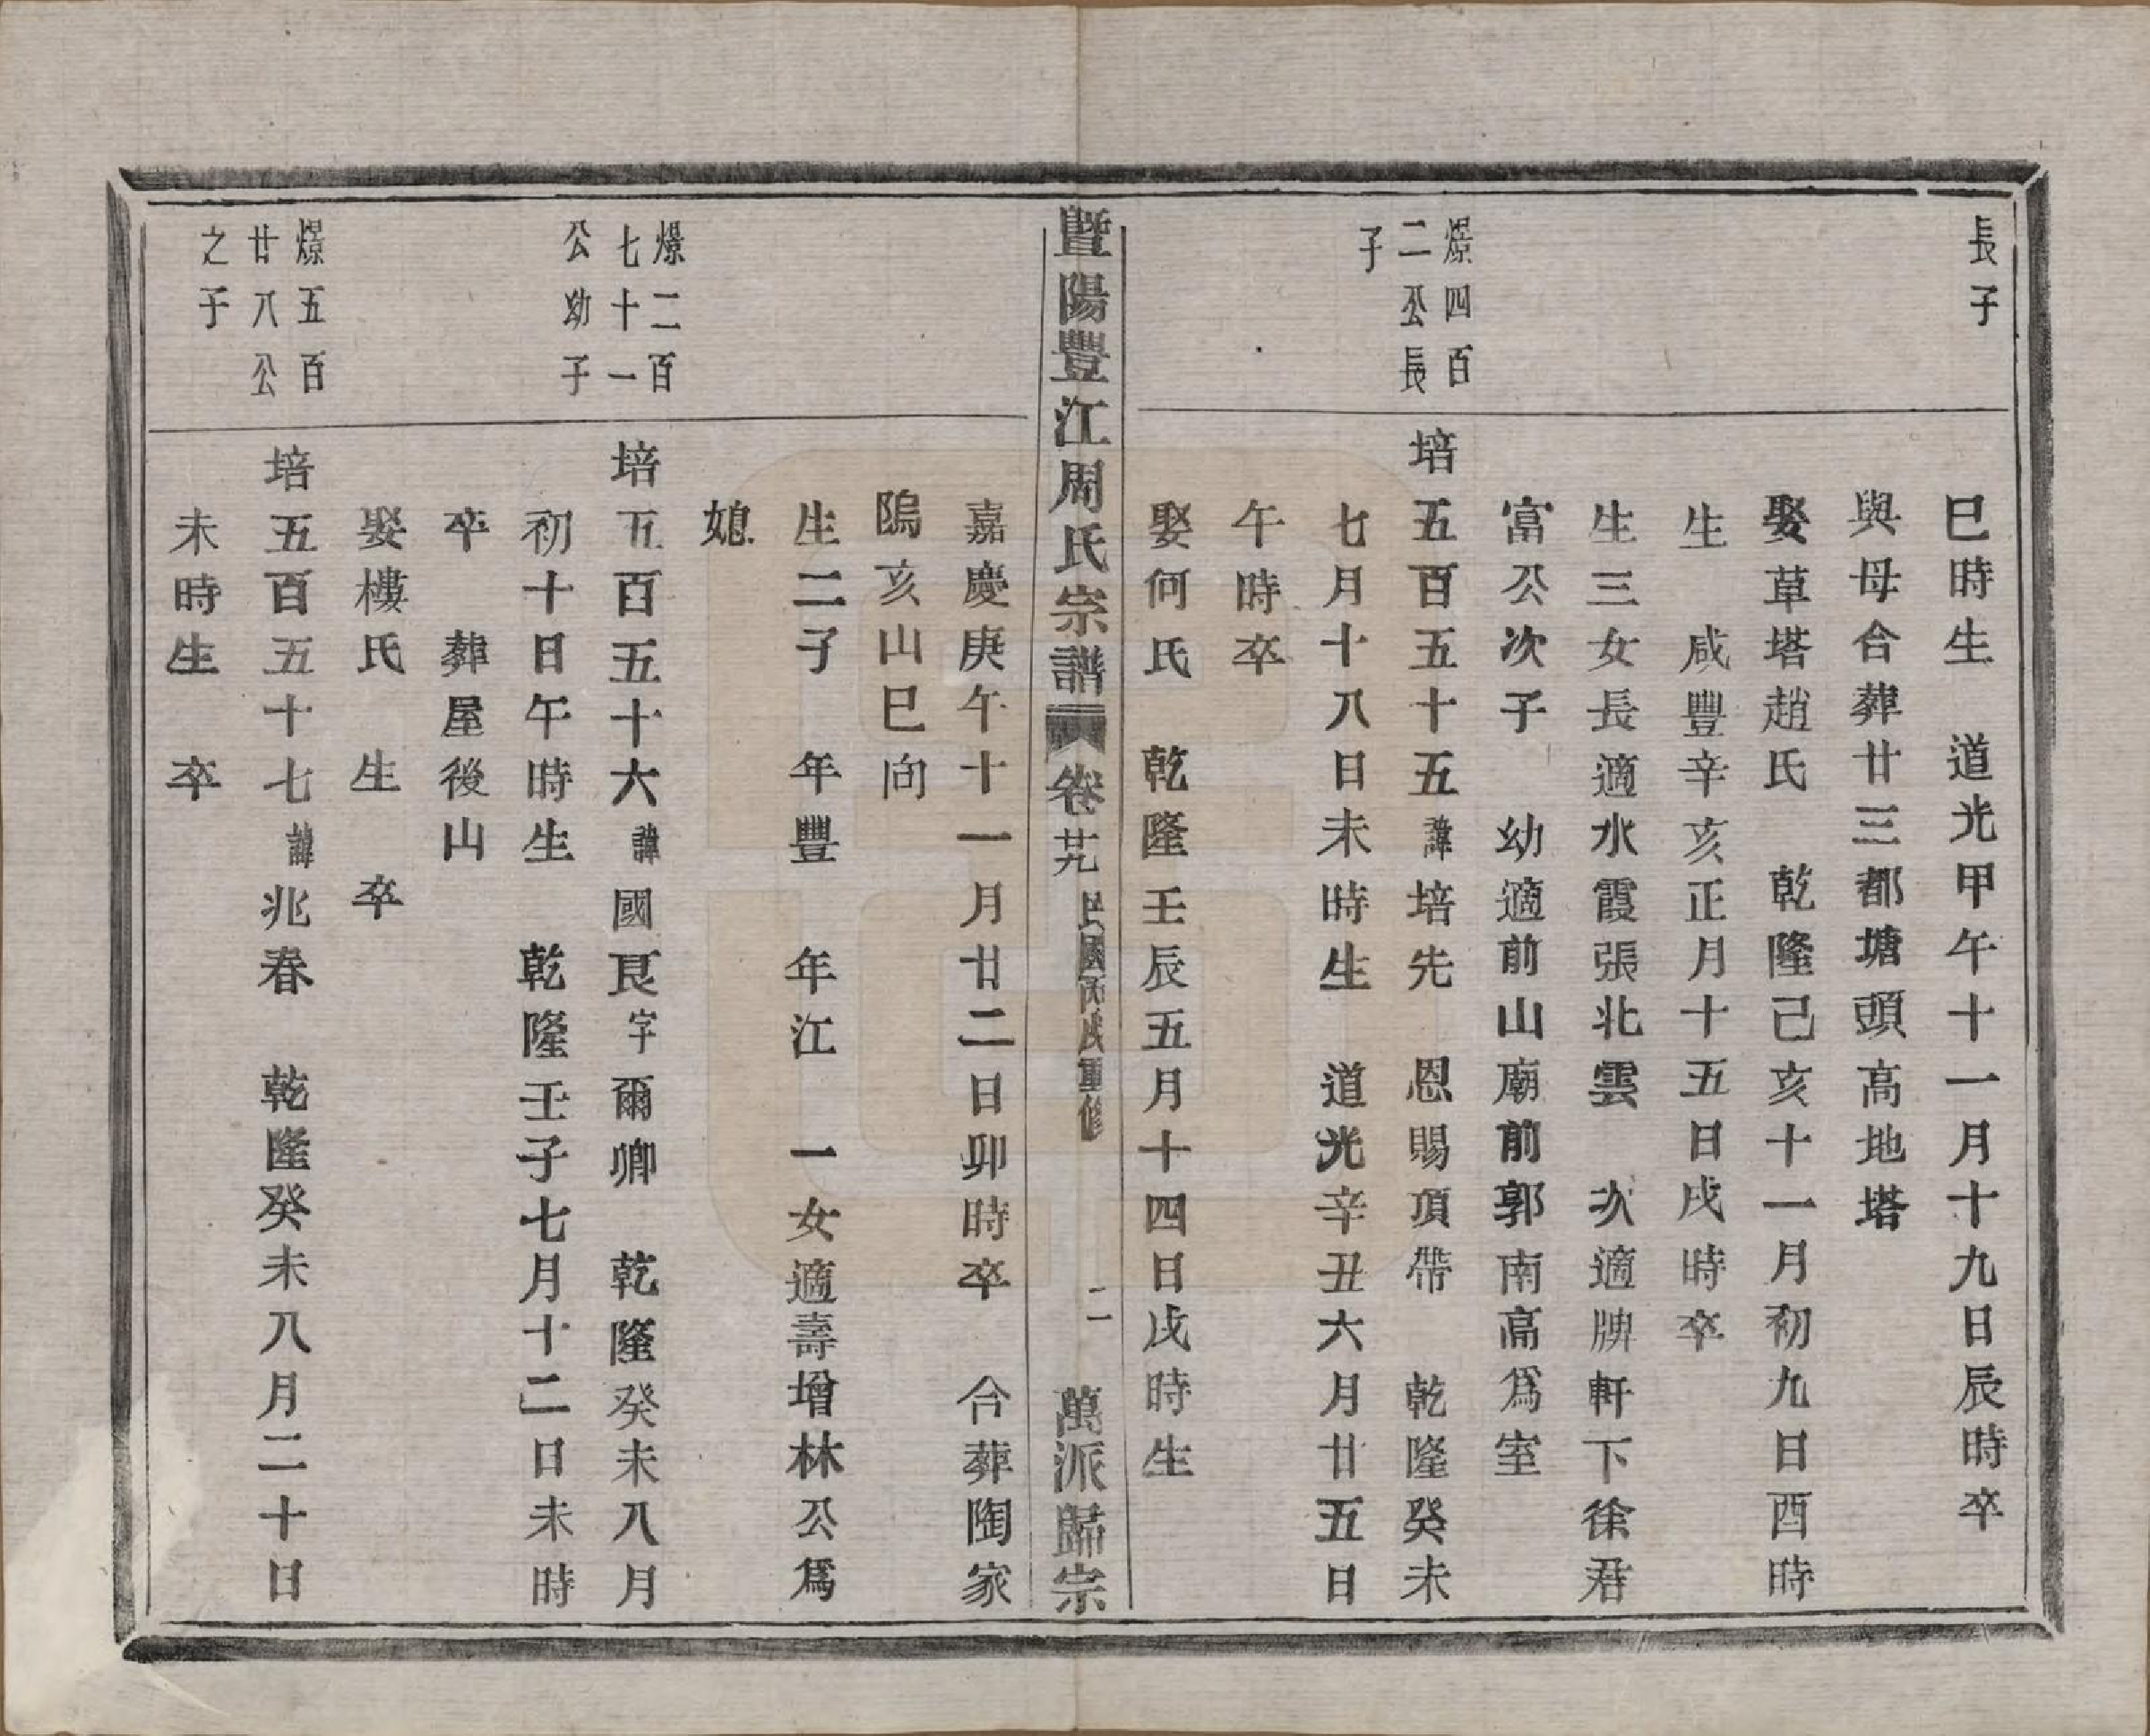 長子
巳時生　道光甲午十一月十九日辰時卒
與母合葬廿三都塘頭高地塔
娶草塔趙氏　乾隆己亥十一月初九日酉時
生　咸豐辛亥正月十五日戌時卒
生三女長適水霞張北雲　次適牌軒下徐君
富公次子　幼適前山廟前郭南高爲室
爆四百
二公長
子
培五百五十五諱培先　恩賜頂帶　乾隆癸未
七月十八日未時生　道光辛丑六月廿五日
午時卒
娶何氏　乾隆壬辰五月十四日戌時生
暨陽豐江周氏宗譜　卷廿九　民國丙戌重修　二　萬派歸宗
嘉慶庚午十一月廿二日卯時卒　合葬陶家
隖亥山巳向
生二子　年豐　年江　一女適壽增林公爲
媳
爆二百
七十一
公幼子
培五百五十六諱國艮字爾卿　乾隆癸未八月
初十日午時生　乾隆壬子七月十二日未時
卒　葬屋後山
娶樓氏　生　卒
爆五百
廿八公
之子
培五百五十七諱兆春　乾隆癸未八月二十日
未時生　卒